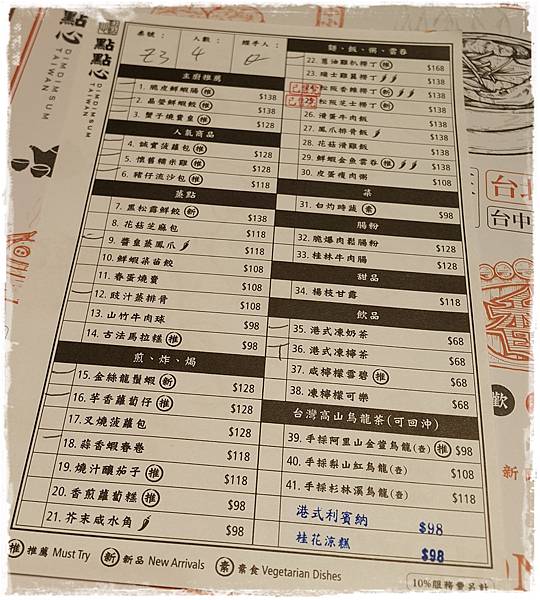 點點心
DIMDIMSUM
TAIWAN
點點心
DIMDIMSUM
TAIWAN
桌號： 人數： 經手人：
Z3 4
主廚推薦
1. 脆皮鮮蝦腸 推 $138
2. 晶瑩鮮蝦餃 推 $138
3. 蟹子燒賣皇 推 $138
人氣商品
4. 誠實菠蘿包 推 $128
5. 懷舊糯米雞 推 $128
6. 豬仔流沙包 推 $118
蒸點
7. 黑松露鮮餃 新 $138
8. 花菇芝麻包 $118
9. 醬皇蒸鳳爪 $118
10. 鮮蝦菜苗餃 $108
11. 春蛋燒賣 $108
12. 豉汁蒸排骨 $108
13. 山竹牛肉球 $98
14. 古法馬拉糕 推 $98
煎、炸、焗
15. 金絲龍鬚蝦 新 $128
16. 芋香蘿蔔仔 推 $128
17. 叉燒菠蘿包 $128
18. 蒜香蝦春卷 $118
19. 燒汁釀茄子 推 $118
20. 香煎蘿蔔糕 推 $98
21. 芥末咸水角 $98
麵、飯、粥、雲吞
22. 蔥油雞扒撈丁 推 $168
23. 瑞士雞翼撈丁 $138
松阪香辣撈丁 新 $138
松阪芝士撈丁 新 $138
26. 滑蛋牛肉飯 $138
27. 鳳爪排骨飯 $138
28. 花菇滑雞飯 $138
29. 鮮蝦金魚雲吞 推 $138
30. 皮蛋瘦肉粥 $108
菜
31. 白灼時蔬 素 $98
腸粉
32. 脆爆肉鬆腸粉 $128
33. 桂林牛肉腸 $118
甜品
34. 楊枝甘露 $118
飲品
35. 港式凍奶茶 $68
36. 港式凍檸茶 $68
37. 咸檸檬雪碧 推 $68
38. 凍檸檬可樂 $68
台灣高山烏龍茶(可回沖)
39. 手採阿里山金萱烏龍(壺) 推 $98
40. 手採梨山紅烏龍(壺) $108
41. 手採杉林溪烏龍(壺) $118
港式利賓納 $98
桂花涼糕 $98
推 推薦 Must Try 新 新品 New Arrivals 素 素食 Vegetarian Dishes
10%服務費另計
台北
台中
歡
新